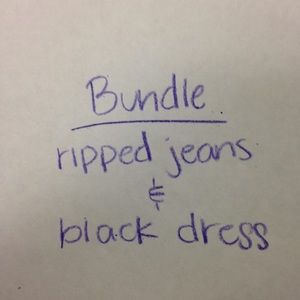 Bundle
ripped jeans
&
black dress